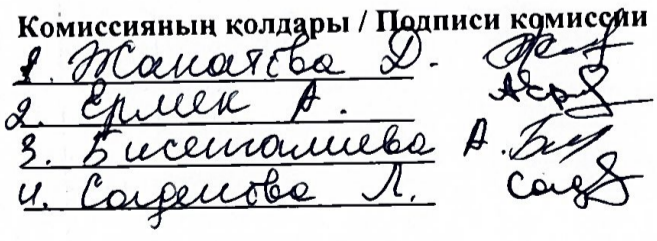 Комиссияның қолдары / Подписи комиссии
1. Жанатева Д.
2. Ермек А.
3. Бисенгалиева А.
4. Садетова Л.